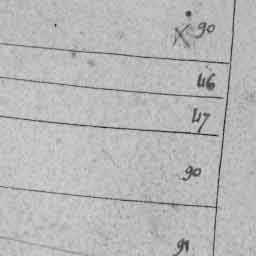 x 90
46
47
90
91